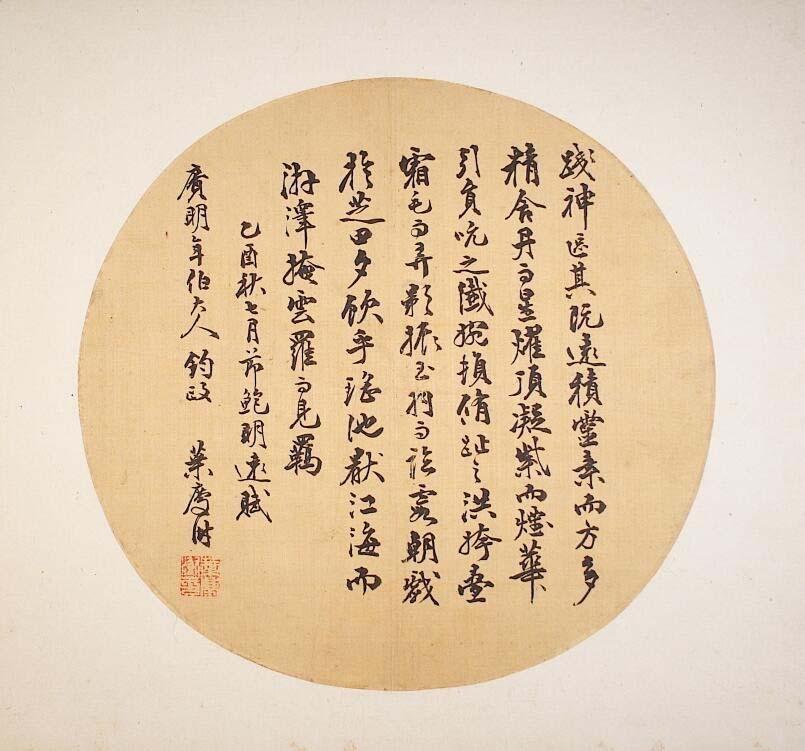 踐神區其既遠積靈素而方多
精含丹而星耀頂凝紫而煙華
引員吭之纖婉頓脩趾之洪姱疊
霜毛而弄影振玉羽而臨霞朝戲
於芝田夕飲乎瑤池厭江海而
游澤掩雲羅而見羈
乙酉秋七月節鮑明遠賦
廣明年伯大人 鈞政 葉慶